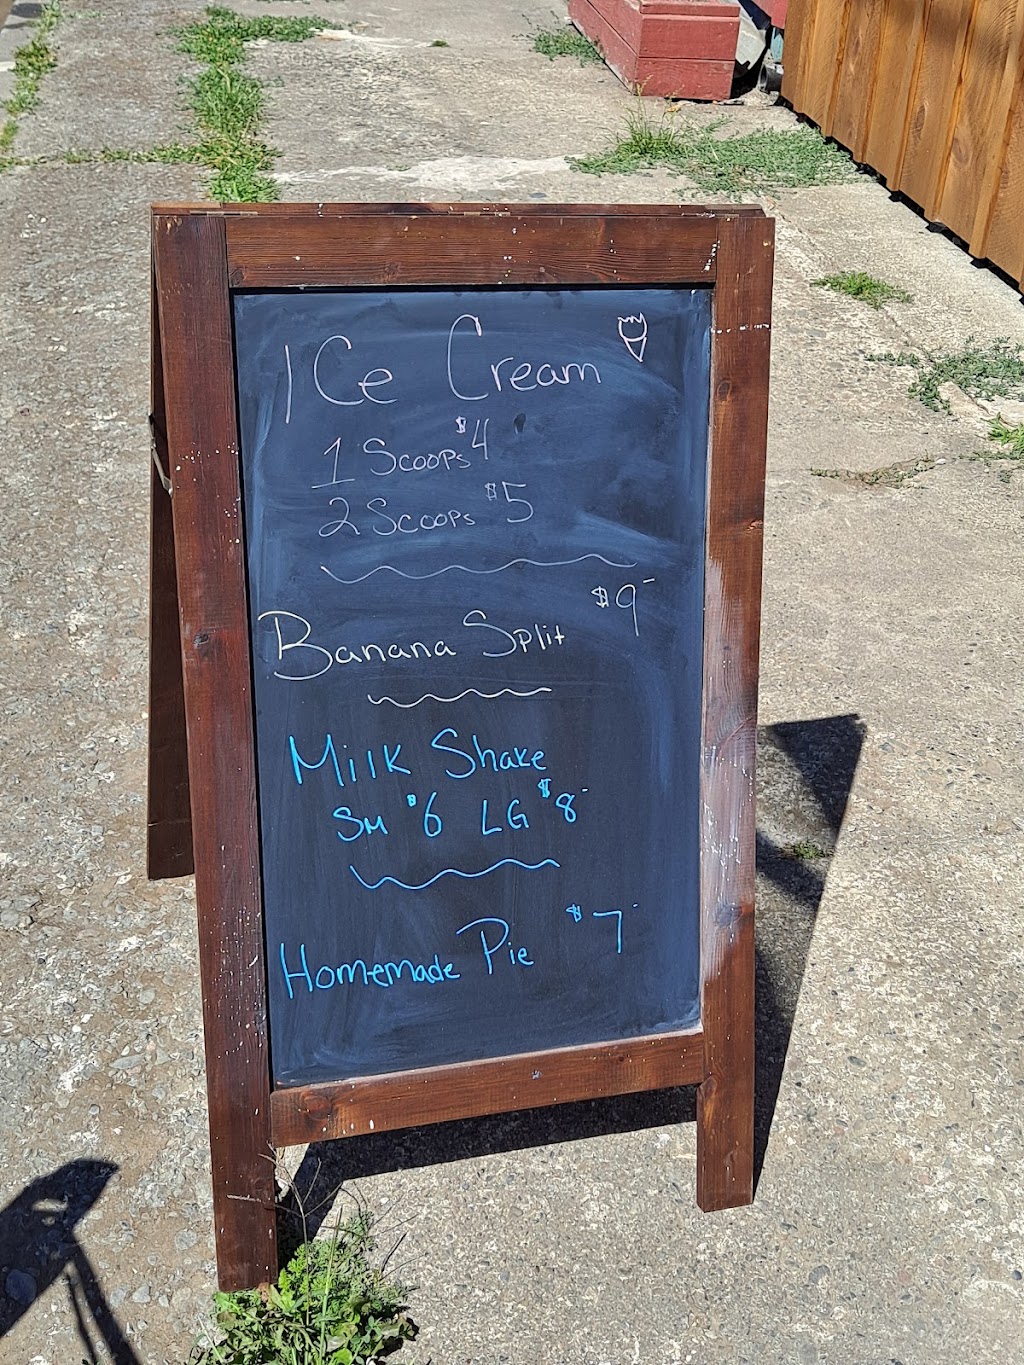 Ice Cream
1 Scoops $4
2 Scoops $5
Banana Split $9-
Milk Shake
SM $6 LG $8-
Homemade Pie $7-